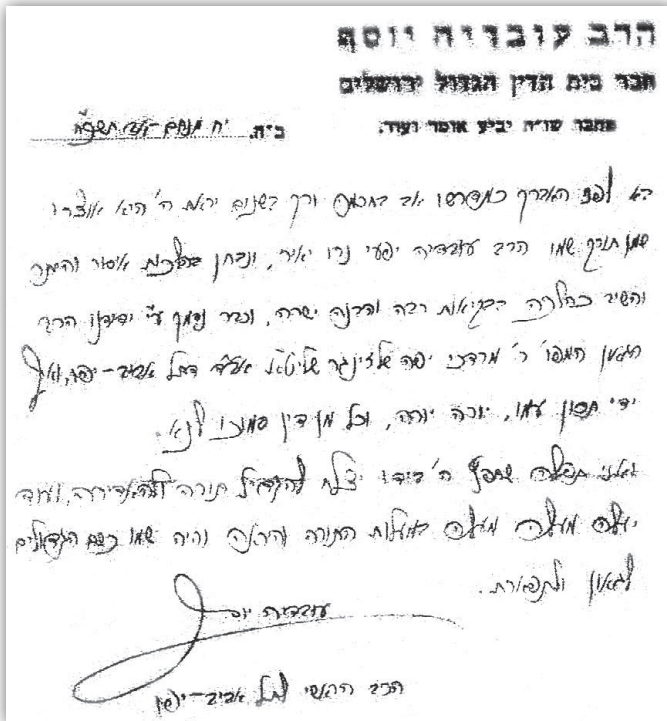 הרב עובדיה יוסף
חבר בית הדין הגדול ירושלים
מחבר שו״ת יביע אומר ועוד.
ב״ה. י״ח מנחם-אב
בא לפני האברך כמדרשו אב בחכמה ורך בשנים יראת ה' היא אוצרו
שמן תורק שמו הרב עובדיה יפעי נרו יאיר, ונבחן בהלכות איסור והיתר
והשיב כהלכה בבקיאות רבה והבנה ישרה, וכבר נסמך ע״י ידידנו הרב
הגאון המפו' ר' מרדכי יפה שלזינגר שליט״א אב״ד דתל אביב-יפו, ואף
ידי תכון עמו, יורה יורה, וכל מן דין סמוכו לנא.
ואני תפלה שחפץ ה' בידו יצלח להגדיל תורה ולהאדירה, ועוד
יעלה מעלה מעלה במעלות התורה והיראה והיה שמו כשם הגדולים
לגאון ולתפארת.
עובדיה יוסף
הרב הראשי לתל אביב-יפו